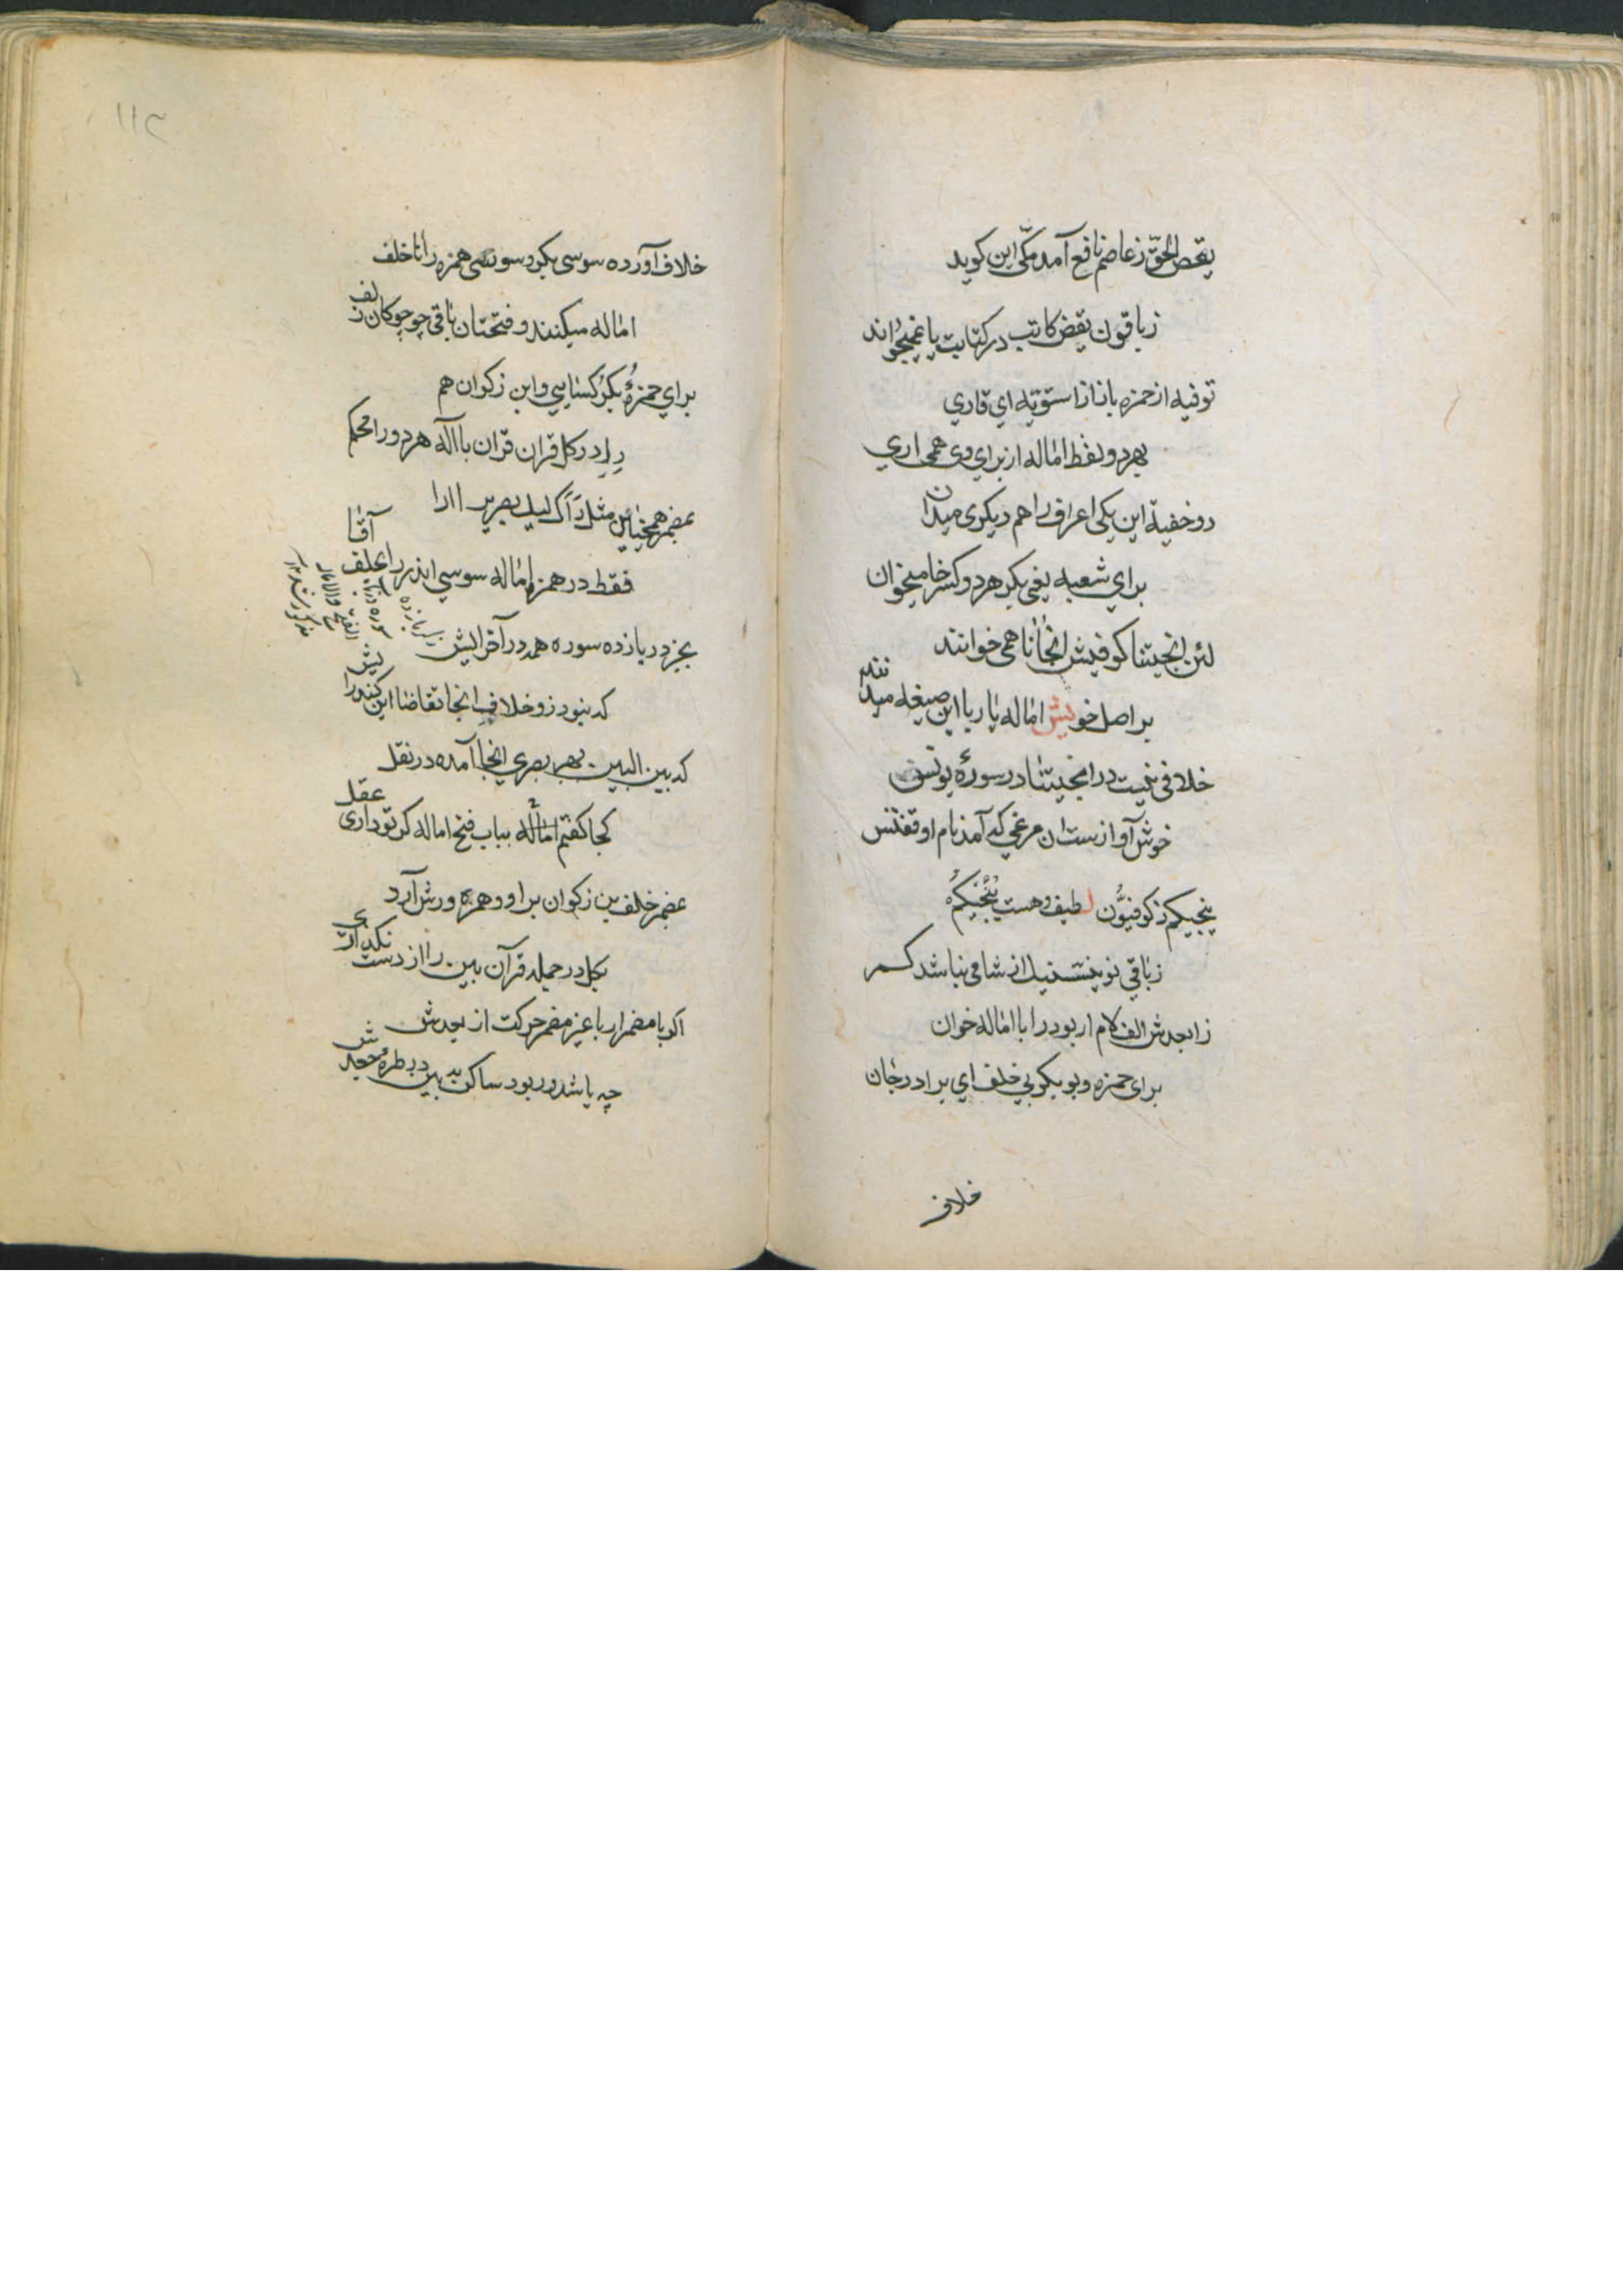 یقص الحق ز عاصم نافع آمد مکی این کوید
ز باقون یقض کاتب در کتابت یا نمیخواند
توفیه از حمزه باز استوته ای قاری
بهر دو لفظ اماله از برای وی همی اری
دو خفیة این یکی اعراف را هم دیکری میدان
برای شعبه یعنی بکر هر دو کسر خا میخوان
لئن انجیتنا کوفیش انجانا همی خوانند
بر اصل خویش اماله یا ریا این صیغه میدانند
خلافی نیست در انجیتنا در سورۀ یونس
خوش آوازست ان مرغی که آمد نام او ققنس
ینجیکم ز کوفیون لطیف و هست ینجیکم
ز باقی نون ینسینک از شامی نباشد کم
ز ابعدش الف کلام ار بود را با اماله خوان
برای حمزه و بو بکر بی خلف ای برادر جان
خلاف
۱۱۲
خلاف آورده سوسی بکر و سوسی همزه را نا خلف
اماله میکنند و فتحتان باقی چو چوکان زلف
برای حمزۀ بکر کسایی و ابن زکوان هم
را در کل قران قران با اله هر دو را محکم
بمضمر همچنان مثل رآک لیک بصریر ا ارا
فقط در همزه اماله سوسی اندر را بخلف آقا
بجز در یازده سوره همه در آخر الیش
که نبود زو خلاف اینجا تقاضا این کند رایش
که بین البین بهر بصری اینجا آمده در نقل
کجا کفتم اماله بباب فتح اماله کر تو داری عقل
بمضمر خلف بن زکوان برا و همزه ورش آرد
بکل در جمله قرآن بین را از دست نکذاری
اکر با مضمر ار با غیر مضمر حرکت از بعدش
چه باشد ور بود ساکن به بین در طره